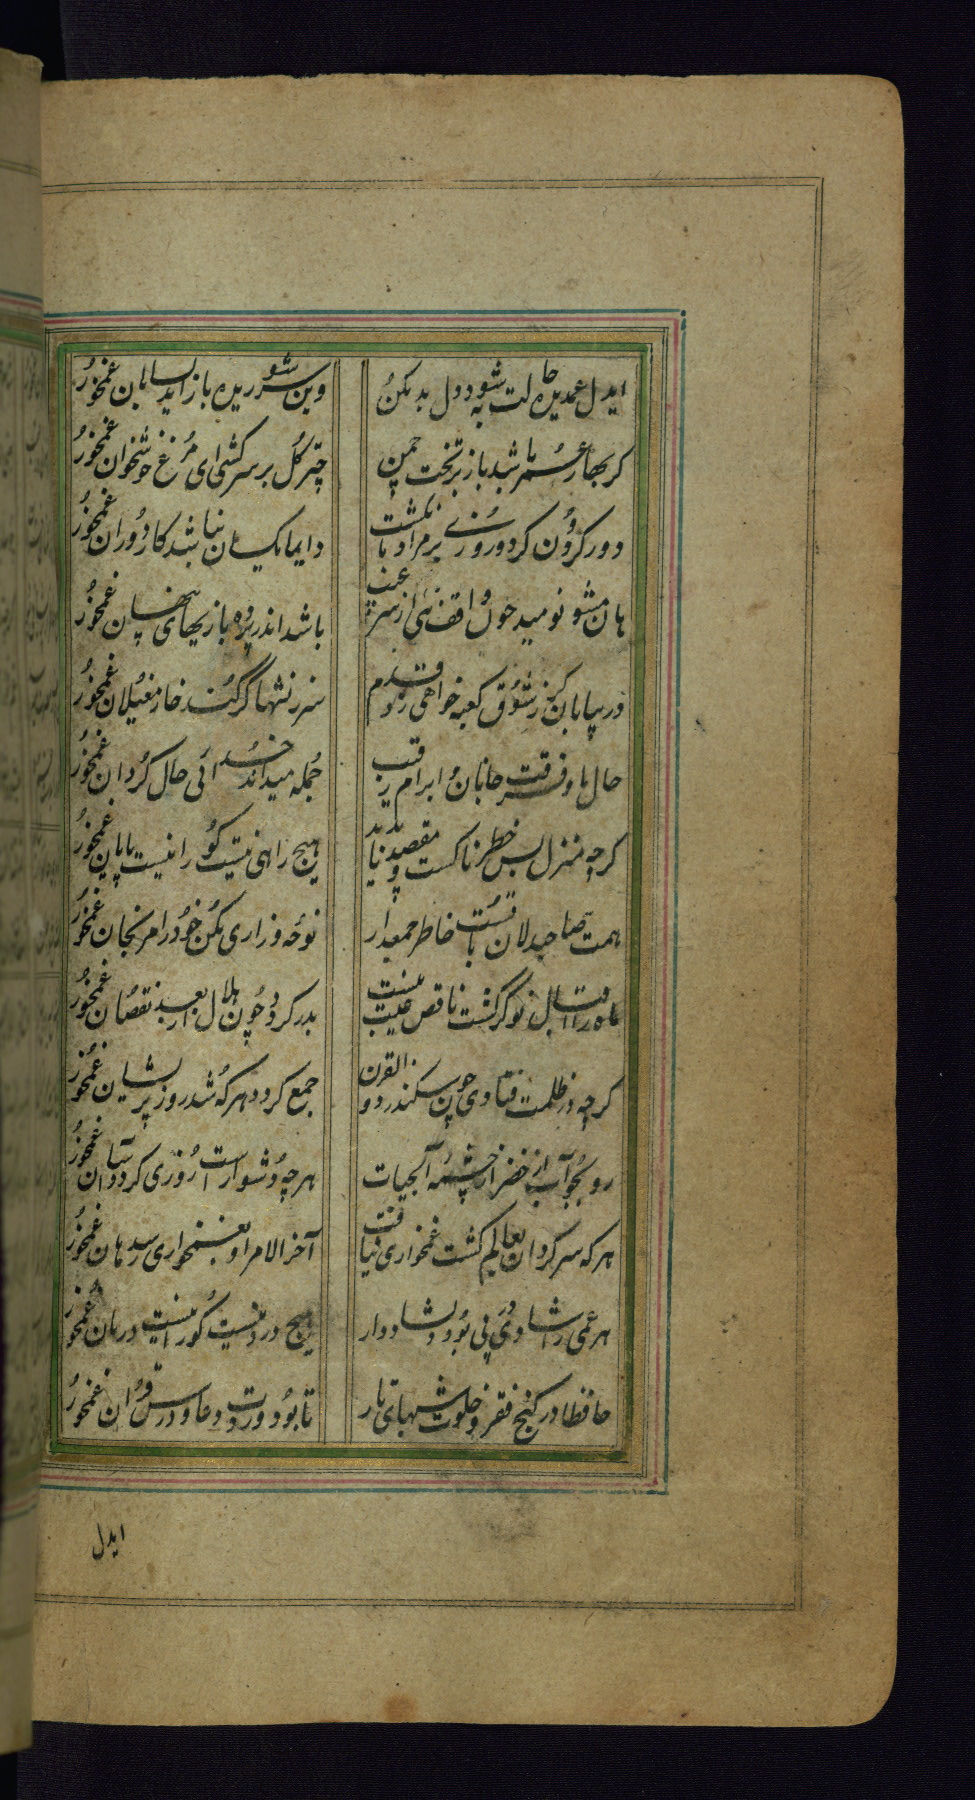 ایدل غمدیده حالت به شود دل بد مکن
وین سر شوریده باز آید بسامان غم مخور
کر بهار عمر باشد باز بر تخت چمن
چتر کل بر سر کشی ای مرغ خوشخوان غم مخور
دور کردون کر دو روزی بر مراد ما نکشت
دایما یکسان نباشد کار دوران غم مخور
هان مشو نومید چون واقف نئی از سر غیب
باشد اندر پرده بازیهای پنهان غم مخور
در بیابان کر ز شوق کعبه خواهی زد قدم
سرزنشها کر کند خار مغیلان غم مخور
حال ما و فرقت جانان و ابرام رقیب
جمله میداند خدائی حال کردان غم مخور
کرچه منزل بس خطرناکست و مقصد ناپدید
هیچ راهی نیست کو را نیست پایان غم مخور
همت صاحبدلان با تست خاطر جمعدار
نوحه و زاری مکن خود را مرنجان غم مخور
ماه اقبال تو کر کشت ناقص عیب نیست
بدر کردد چون هلال از بعد نقصان غم مخور
کرچه در ظلمت فتادی چون سکندر ذو القرن
جمع کردد هرکه شد روز پریشان غم مخور
رو بجو آب از خضر از چشمه آبحیات
هرچه دشوار است روزی کردد آسان غم مخور
هرکه سرکردان بعالم کشت غمخواری نیافت
آخر الامر او بغمخواری رسد هان غم مخور
هر غمی را شادئی در پی بود دلشاد دار
هیچ دردی نیست کورا نیست درمان غم مخور
حافظا در کنج فقر و خلوت شبهای تار
تا بود وردت دعا و درس قرآن غم مخور
ایدل